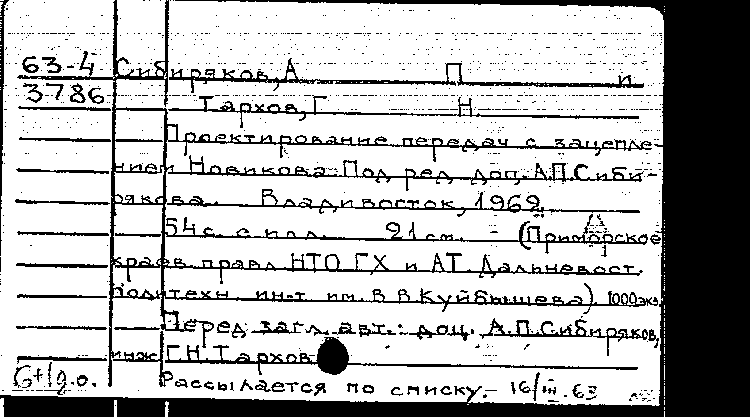 63-4 Сибиряков, А П и
3786 Тархов, Г Н.
Проектирование передач с зацепле-
нием Новикова. Под ред. доц. А.П. Сиби-
рякова. Владивосток, 1962.
54 с. с илл. 21 см. - (Приморское
краев. правл. НТО ГХ и АТ. Дальневост.
политехн. ин-т им. В В. Куйбышева). 1000 экз.
Перед загл. авт.: доц. А.П. Сибиряков,
инж. Г.Н. Тархов
Рассылается по списку. - 16/III.63